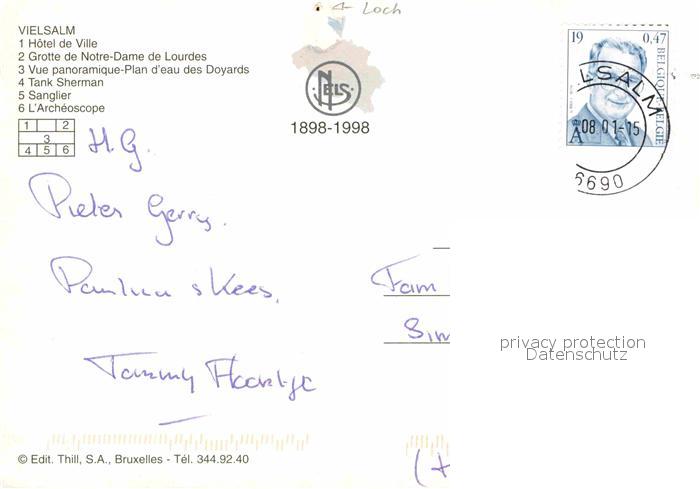 4 Loch
VIELSALM
1 Hôtel de Ville
2 Grotte de Notre-Dame de Lourdes
3 Vue panoramique-Plan d'eau des Doyards
4 Tank Sherman
5 Sanglier
6 L'Archéoscope
1 2
3
4 5 6
NELS
1898-1998
19 0,47
BELGIQUE-BELGIE
A
LSALM
08 01-15
6690
H.G.
Pieter Gerry.
Paulina & Kees.
Tammy
Fam
Sim
privacy protection
Datenschutz
© Edit. Thill, S.A., Bruxelles - Tél. 344.92.40